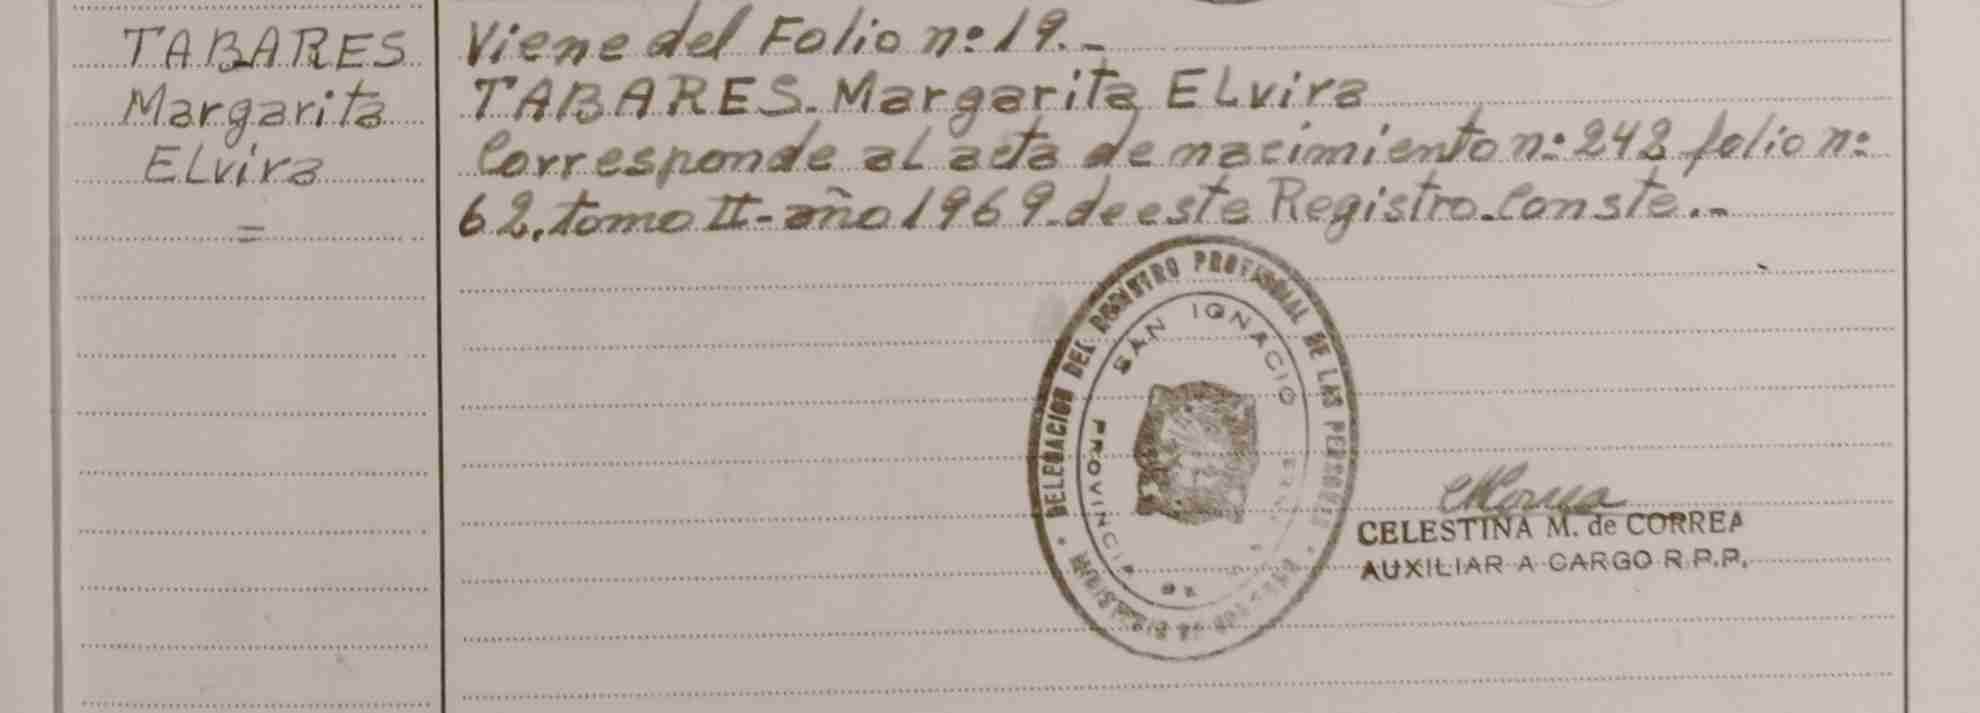 TABARES
Margarita
Elvira
=
Viene del Folio nº 19.-
TABARES. Margarita Elvira
Corresponde al acta de nacimiento nº 242 folio nº
62. tomo II - año 1969. de este Registro. Conste.-
DELEGACION DEL REGISTRO PROVINCIAL DE LAS PERSONAS
SAN IGNACIO
PROVINCIA DE
CELESTINA M. de CORREA
AUXILIAR A CARGO R.P.P.